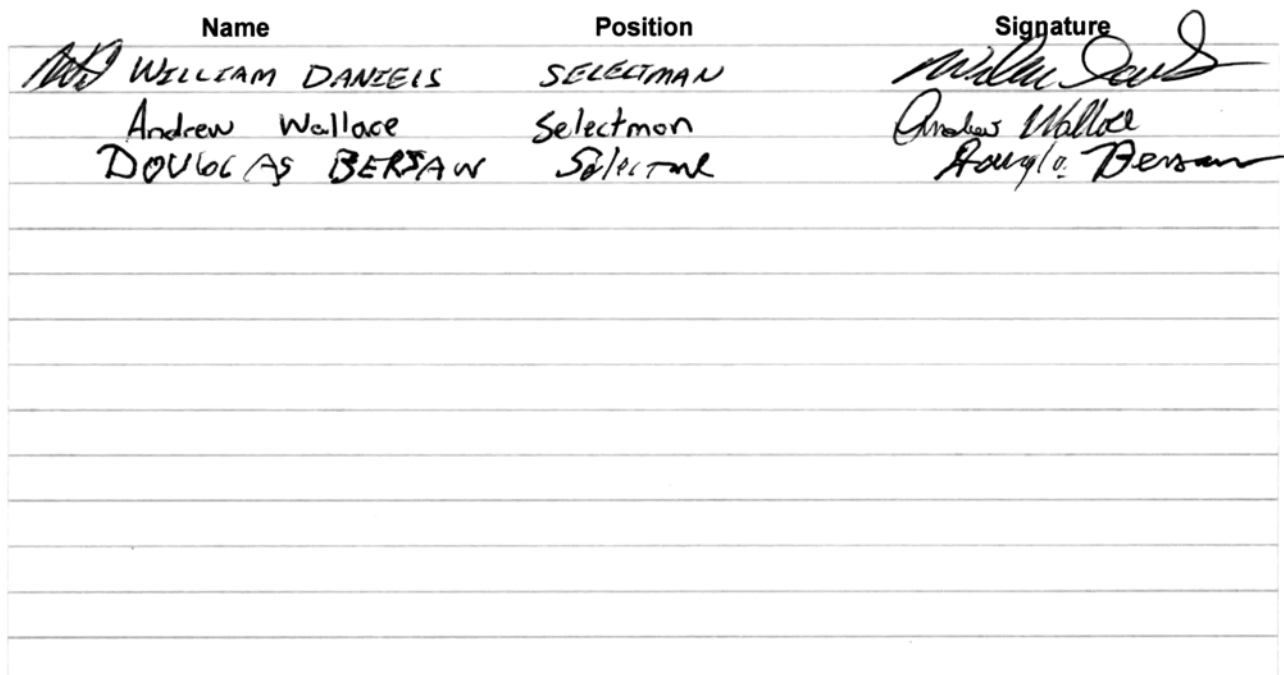 Name Position Signature
WILLIAM DANIELS SELECTMAN
Andrew Wallace Selectman Andrew Wallace
DOUGLAS BERSAW Selectman Douglas Bersaw